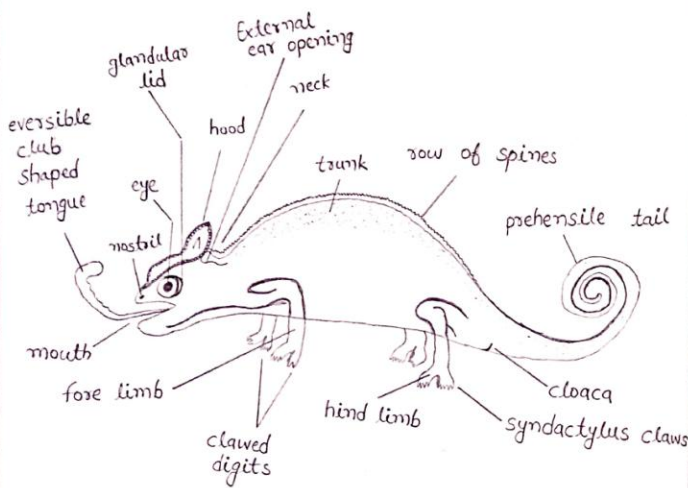 External
ear opening
glandular
lid
neck
eversible
club
shaped
tongue
hood
eye
trunk
row of spines
prehensile tail
nostril
mouth
fore limb
clawed
digits
hind limb
cloaca
syndactylus claws